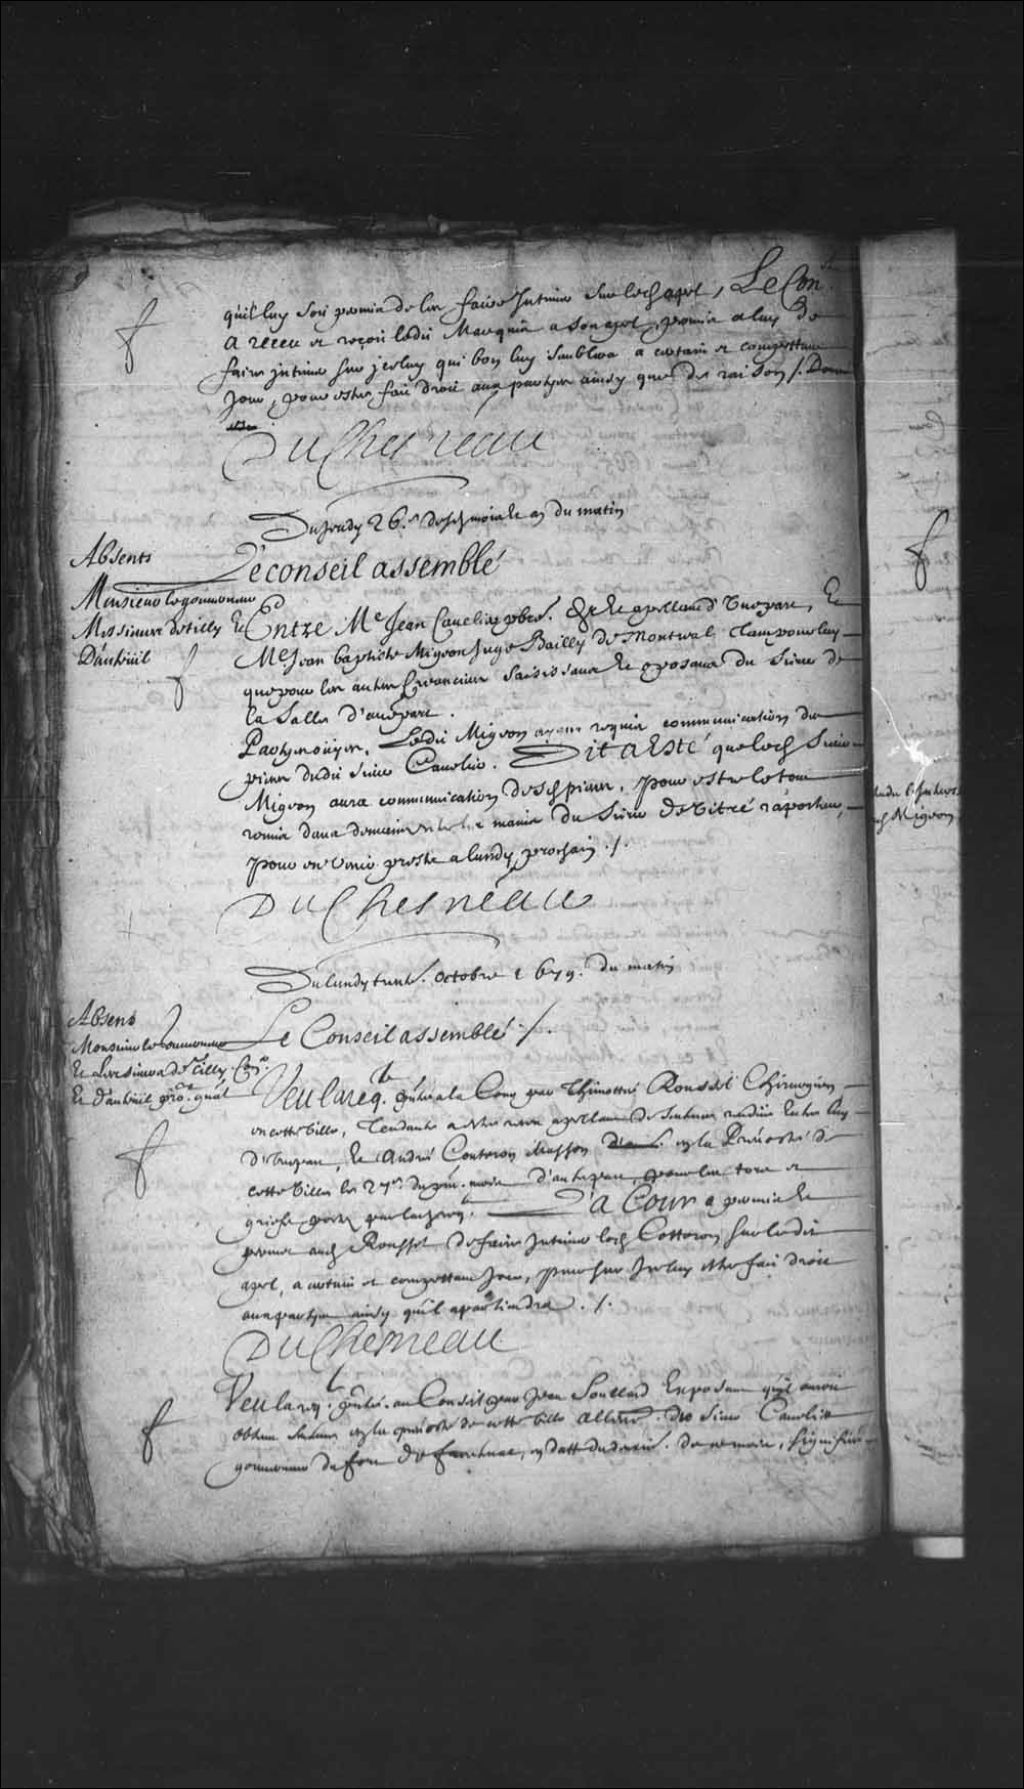 qu'il luy soit permis de les faire Intimer sur led. apel, Le Con.
a receu et reçoit ledit Marquis a son apel, permis a luy de
faire intimer sur jceluy qui bon luy semblera a certain et competant
jour, pour estre fait droit aux partyes ainsy que de raison /.
DuChesneau
Du Jeudy 26.e desd. mois et an du matin
Absents
Le conseil assemblé
Monsieur le gouverneur
Messieurs de tilly Et
Dauteuil
Entre Me Jean Cavelier pbre. &c. apellant d'une part, Et
Me Jean baptiste Migeon Juge Bailly de Montreal tant pour luy
que pour les autres Creanciers saisissans et oposans du sieur de
la Salle d'autre part.
Partyes ouyes, Ledit Migeon ayant requis communication des
pieces dudit sieur Cavelier. Dit a Esté que led. sieur
Migeon aura communication desd. pieces, pour estre le tout
remis dans demain es mains du sieur de Vitré raporteur,
pour en venir prests a lundy prochain ./.
DuChesneau
Du lundy trente.e octobre 1679. du matin
Absens
Le Conseil assemblé ./.
Monsieur le Gouverneur
Et Les sieurs de Tilly Con.er
Et d'auteuil pro.r gñal
Veu la req.te pñtée a la Cour par Thimottée Roussel Chirurgien
en cette ville, Tendante a estre receu apellant de sentence rendue Entre luy
d'une part, Et André Couteron Masson en la Prevosté de
cette ville le 27.e du pñt. mois d'autre part, pour les torts et
griefs portez par lad. req.te La Cour a permis et
permet aud. Roussel de faire Intimer led. Cotteron sur ledit
apel, a certain et competant jour, pour sur Jceluy estre fait droit
aux partyes ainsy qu'il apartiendra ./.
DuChesneau
Veu la req.te pñtée au Conseil par Jean Soullard Exposant qu'il auroit
obtenu sentence en la prevosté de cette ville allenc. du sieur Cavelier
gouverneur du fort de frontenac, en datte du de ce mois, signifiée